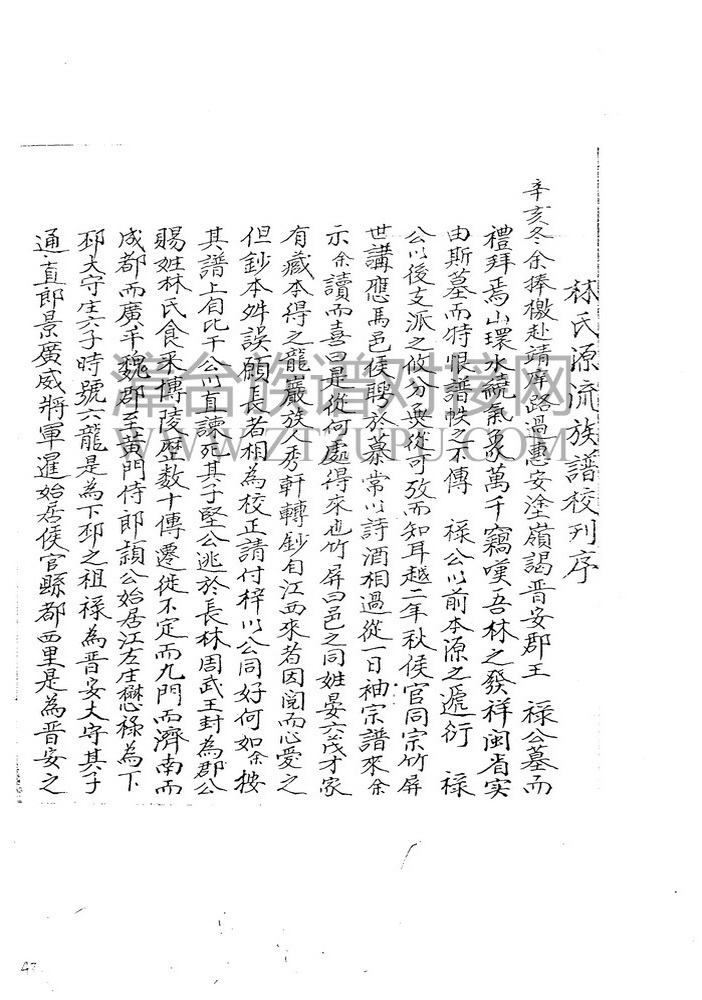 林氏源流族譜校刊序
辛亥冬余捧檄赴靖庠路過惠安塗嶺謁晋安郡王　祿公墓而
禮拜焉山環水繞氣象萬千竊嘆吾林之發祥闽省实
由斯墓而特恨譜帙之不傳　祿公以前本源之遞衍　祿
公以後支派之攸分奚從可攷而知耳越二年秋侯官同宗竹屏
世講應馬邑侯聘於幕常以詩酒相過從一日袖宗譜來余
示余讀而喜曰是從何處得來也竹屏曰邑之同姓晏六茂才家
有藏本得之龍巖族人秀軒轉鈔自江西來者因閲而心愛之
但鈔本舛誤願長者相為校正請付梓以公同好何如余按
其譜上自比干公以直諫死其子堅公逃於長林周武王封為郡公
賜姓林氏食采博陵歷数十傳遷徙不定而九門而濟南而
成都而廣平魏郡至黄門侍郎頴公始居江左生懋祿為下
邳大守生六子時號六龍是為下邳之祖祿為晋安大守其子
通直郎景廣威將軍暹始居侯官縣都西里是為晋安之
漳台族谱对接网
WWW.ZTZUPU.COM
47